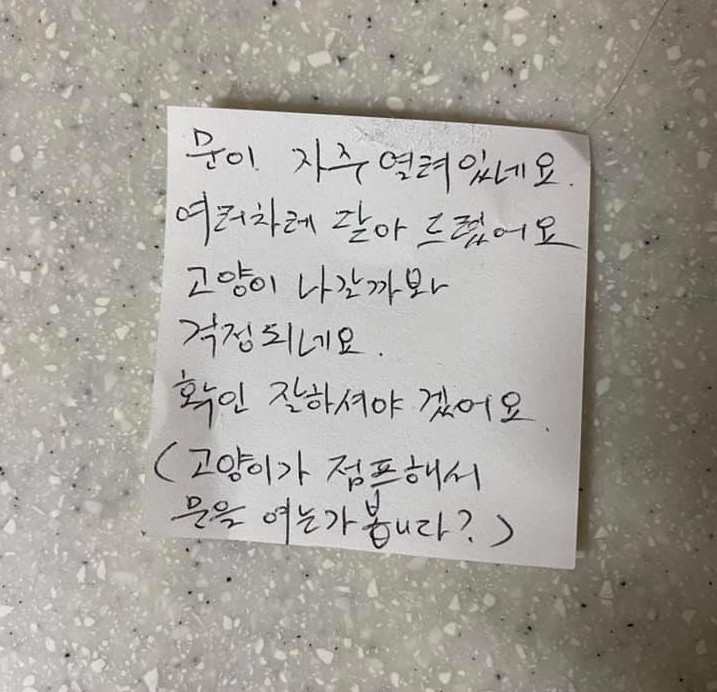 문이 자주 열려있네요.
여러차례 닫아 드렸어요
고양이 나갈까봐
걱정되네요.
확인 잘하셔야 겠어요.
(고양이가 점프해서
문을 여는가 봅니다?)